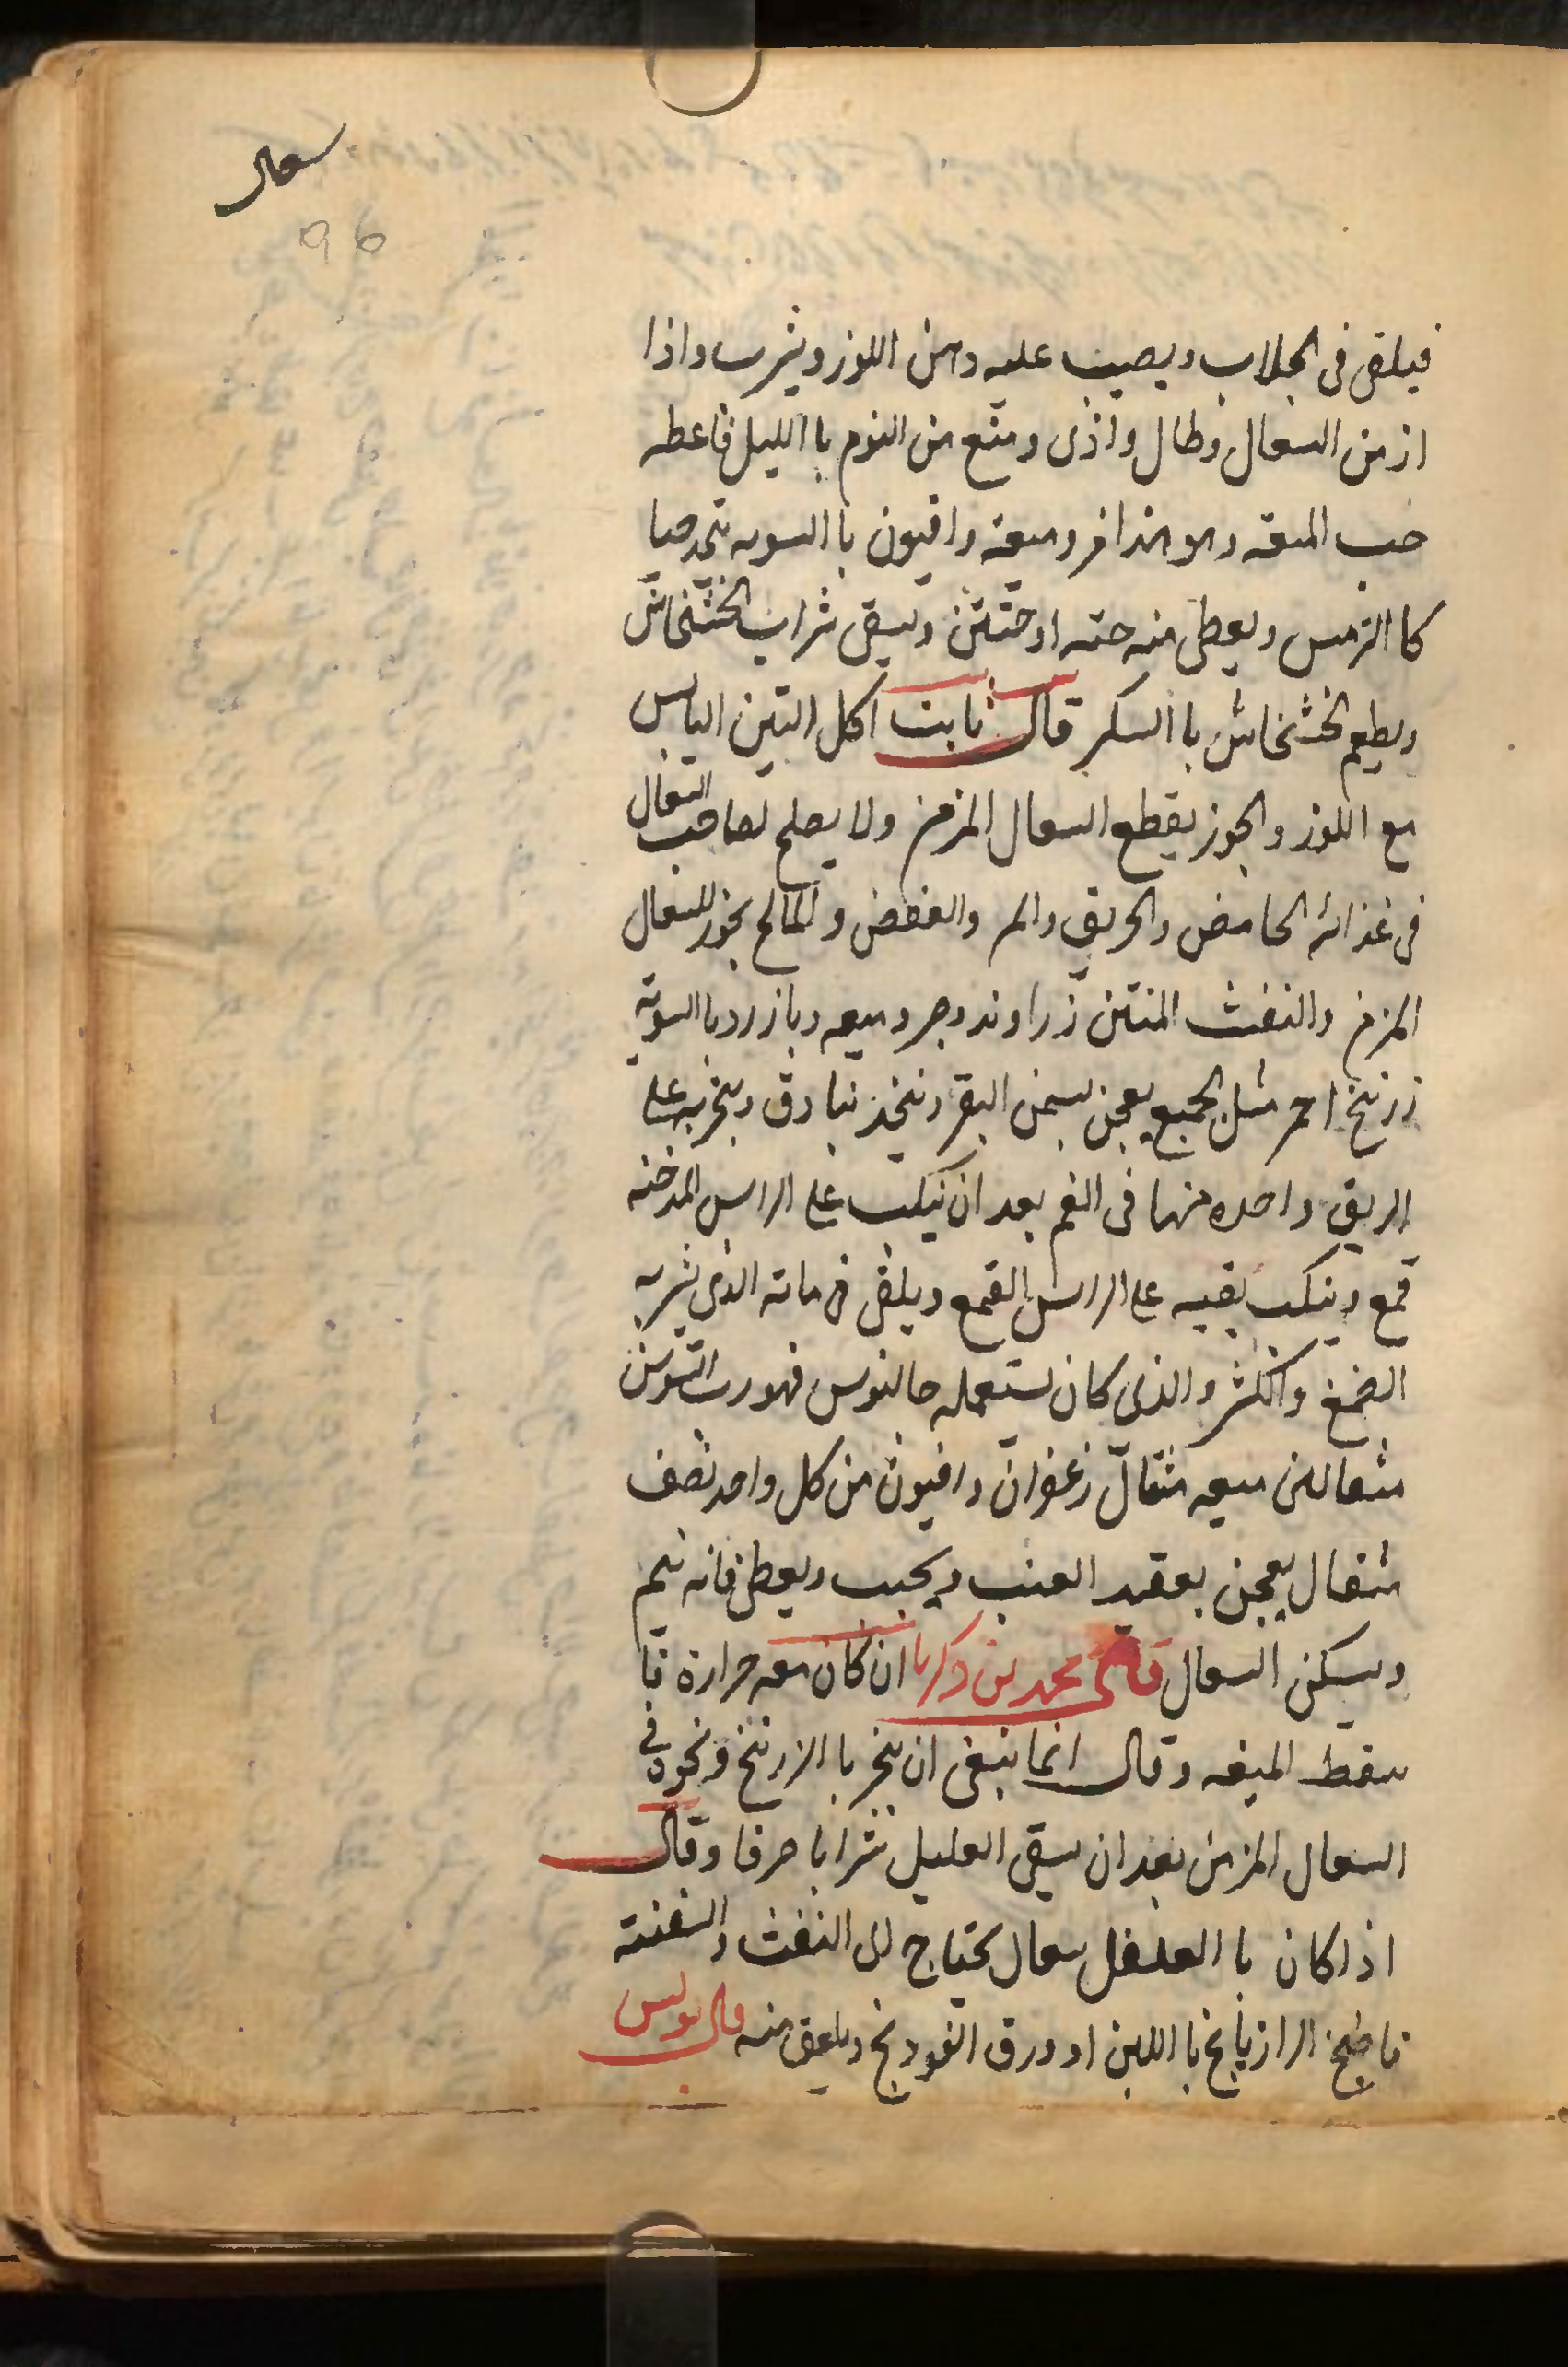 سعال
96
فيلقى فى الجلاب ويصيب عليه دهن اللوز ويشرب واذا
ازمن السعال وطال واذى ومنع من النوم با الليل فاعطه
حب الميعه وهو مر وميعه وافيون با السويه يتخذ حبا
كا الترمس ويعطى منه حبه او حبتين ويسقى شراب الخشخاش
ويطعم الخشخاش با السكر قال ثابت اكل التين اليابس
مع اللوز والجوز يقطع السعال المزمن ولا يصلح لصاحب السعال
فى غذائه الحامض والحريف والمر والعفص والمالح بخور للسعال
المزمن والنفث المنتن زراوند ومر وميعه وبازرد با السويه
زرنيخ احمر مثل الجميع يعجن بسمن البقر ويتخذ بنادق ويتبخر به على
الريق واحده منها فى الفم بعد ان ينكب على الراس المدخنه
قمع وينكب بفيه على الراس القمع ويلقى فى مائه الذى يشربه
الصمغ والكثر والذى كان يستعمله جالنوس فهو رب السوسن
مثقالين ميعه مثقال زعفران وافيون من كل واحد نصف
مثقال يعجن بعقيد العنب ويحبب ويعطى فانه ينيم
ويسكن السعال قال محمد بن زكريا ان كان معه حرارة فا
سقط الميعه وقال انما ينبغى ان يبخر با الزرنيخ ونحوه فى
السعال المزمن بعد ان يسقى العليل شرابا صرفا وقال
اذا كان با سعال يحتاج الى النفث
فاطبخ الرازيانج با اللبن او ورق الفودنج ويلعق منه قال بولس